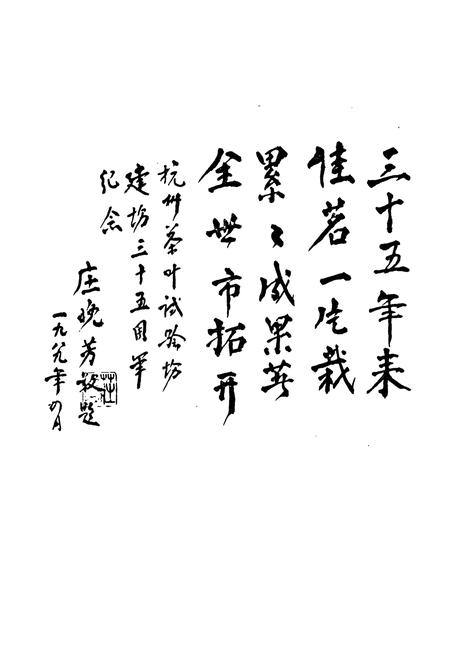 三十五年来
佳茗一栽
累〻成果
全世市拓开
杭州茶叶试验场
建场三十五周年
纪念
庄晚芳敬题
一九八九年月